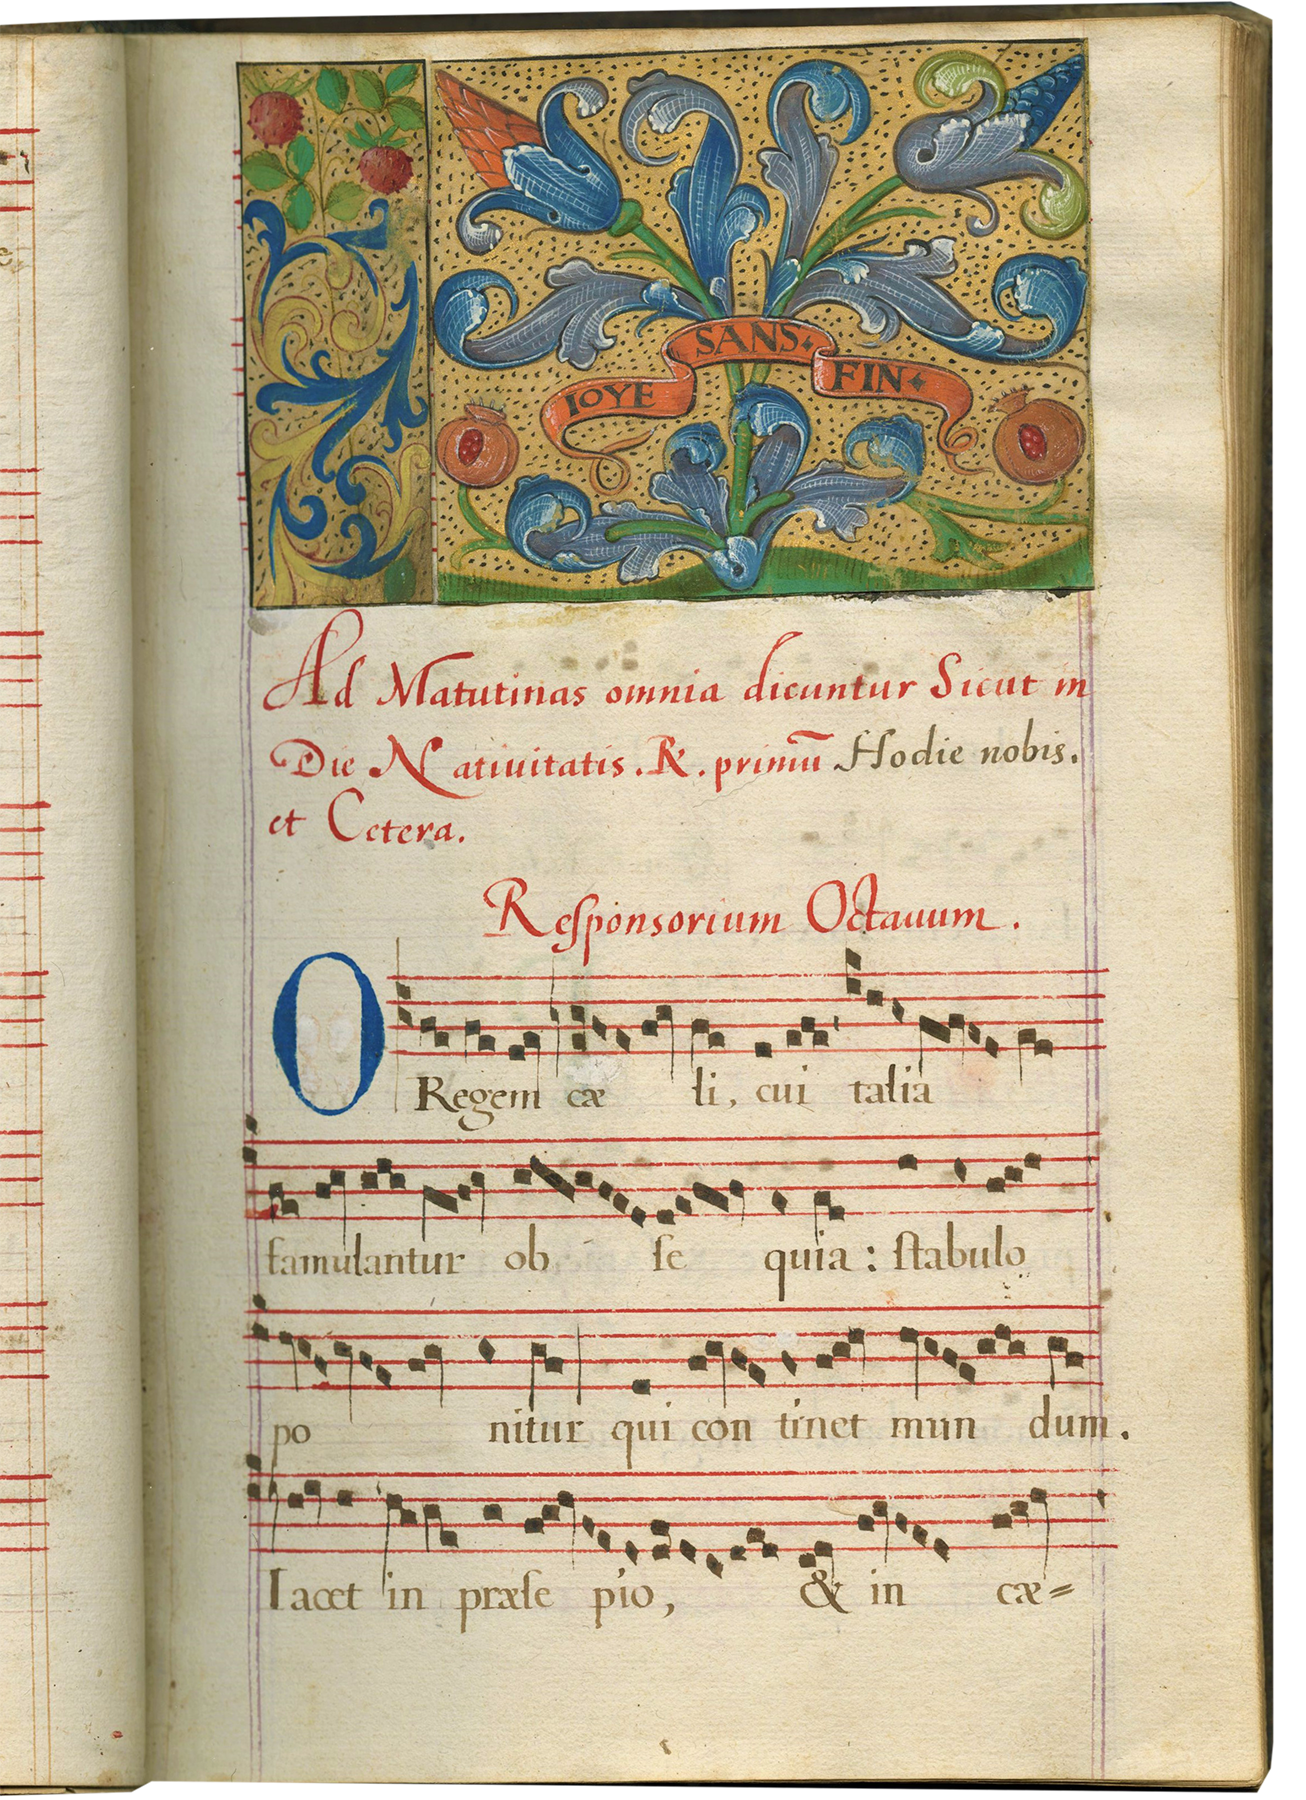 IOYE SANS· FIN·
Ad Matutinas omnia dicuntur Sicut in
Die Natiuitatis. ℟. primũ Hodie nobis.
et Cetera.
Reſponsorium Octauum.
O Regem cæ li, cui talia
famulantur ob ſe quia: ſtabulo
po nitur qui con tinet mun dum.
Iacet in præſe pio, & in cæ=